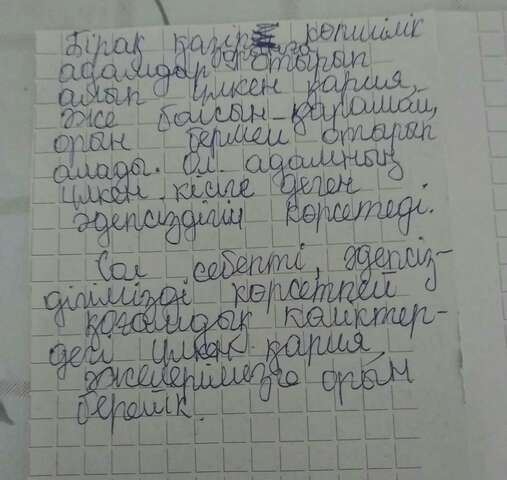 Бірақ қазір көпшілік
адамдар орынға отырып
алып үлкен қария,
әже болсын қарамай,
орын бермей отырып
алады. Ол адамның
үлкен кісіге деген
әдепсіздігін көрсетеді.
Сол себепті, әдепсіз-
дігімізді көрсетпей
қоғамдық көліктер-
дегі үлкен қария,
әжелерімізге орын
берейік.